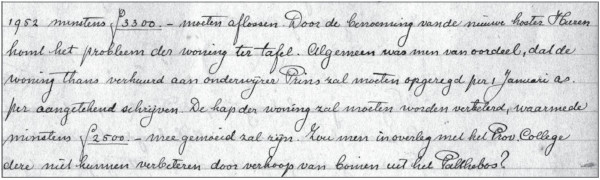 1952 minstens ƒ 3300.- moeten aflossen. Door de benoeming van de nieuwe koster Heeren
komt het probleem der woning ter tafel. Algemeen was men van oordeel, dat de
woning thans verhuurd aan onderwijzer Prins zal moeten opgezegd per 1 Januari a.s.
per aangetekend schrijven. De kap der woning zal moeten worden verbeterd, waarmede
minstens ƒ 2500.- mee gemoeid zal zijn. Zou men in overleg met het Prov. College
deze niet kunnen verbeteren door verkoop van bomen uit het Palthebos?